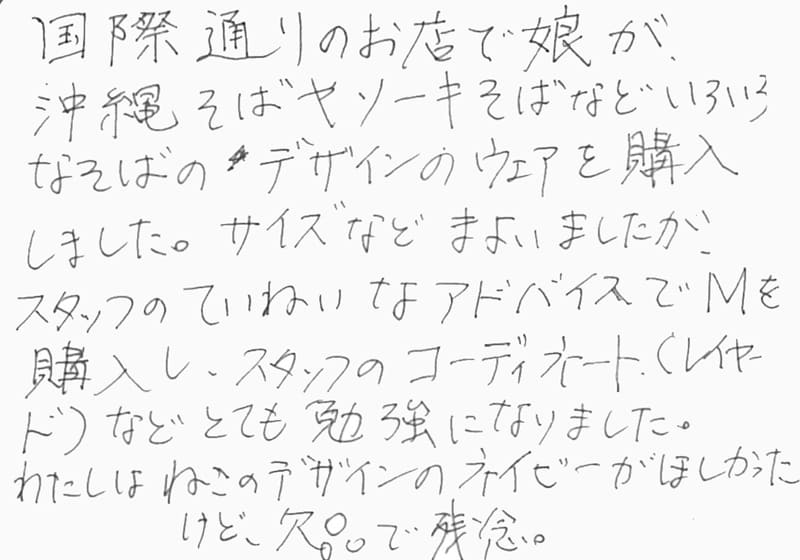 国際通りのお店で娘が、
沖縄そばヤソーキそばなどいろいろ
なそばのデザインのウェアを購入
しました。サイズなどまよいましたが、
スタッフのていねいなアドバイスでMを
購入し、スタッフのコーディネート、(レイヤー
ド)などとても勉強になりました。
わたしはねこのデザインのネイビーがほしかった
けど、欠品で残念。